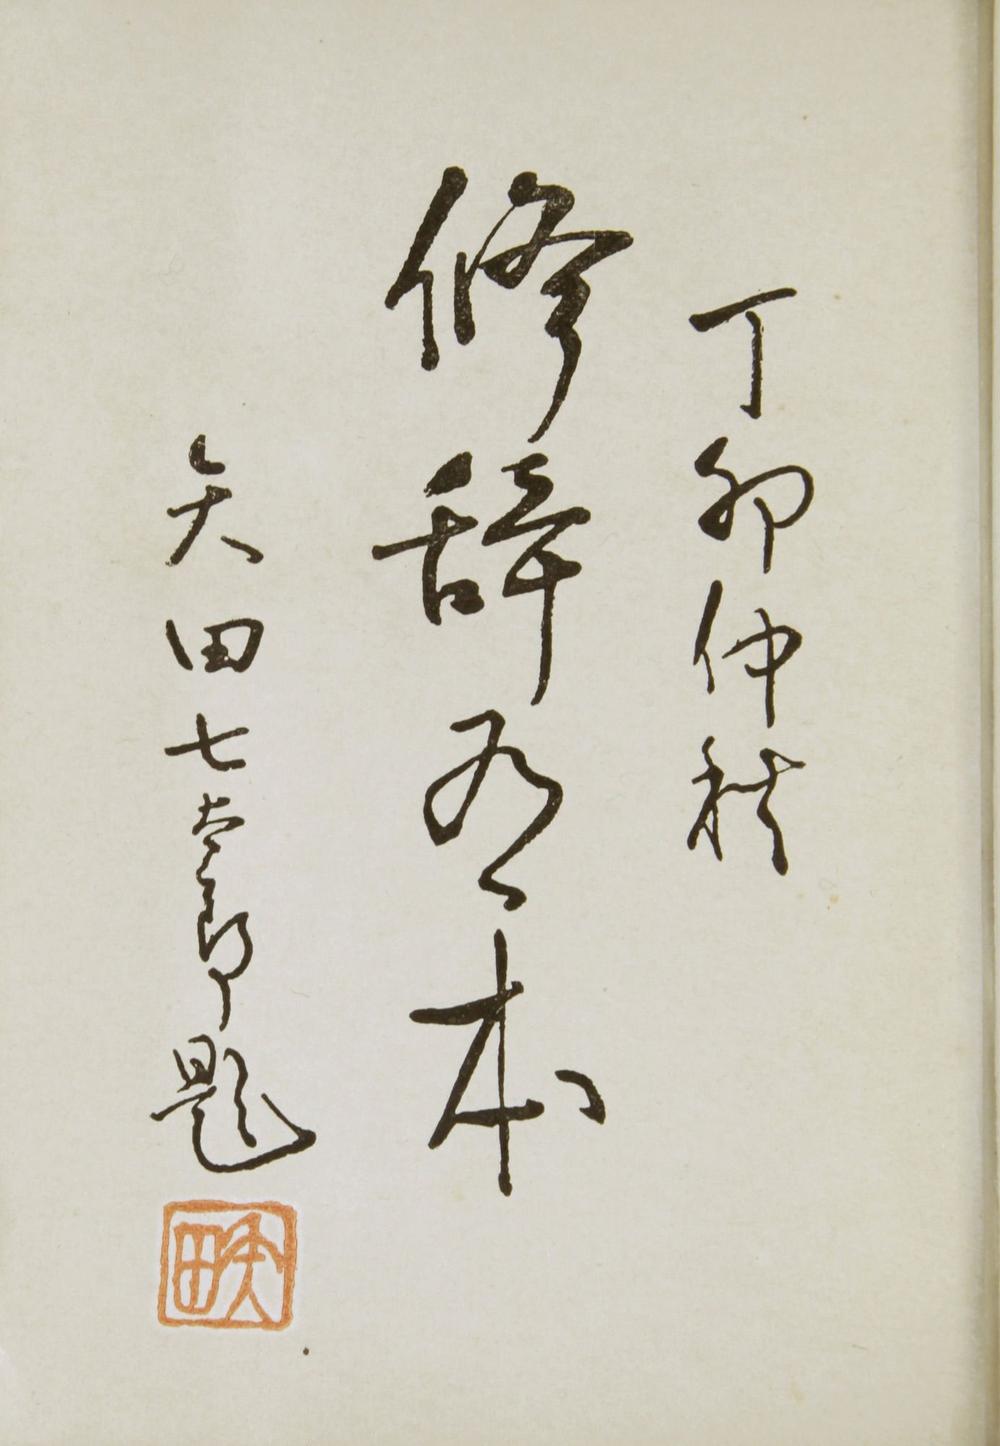 丁卯仲秋
修辞有本
矢田七太郎題
矢田